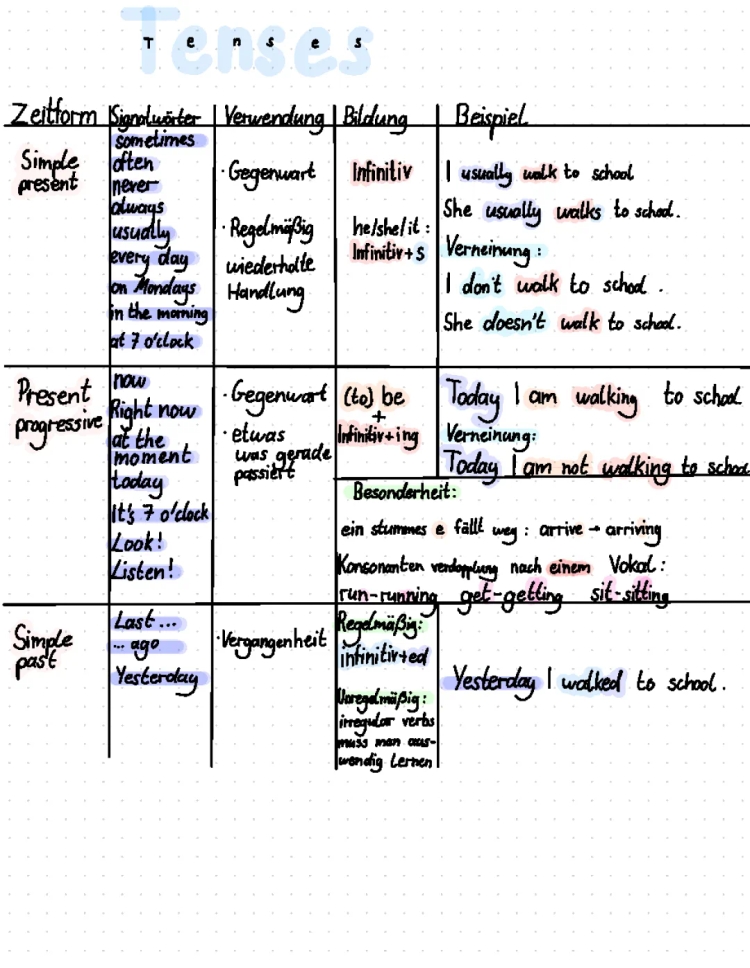 Tenses
T e n s e s
Zeitform Signalwörter Verwendung Bildung Beispiel
Simple present
sometimes
often
never
always
usually
every day
on Mondays
in the morning
at 7 o'clock
· Gegenwart
· Regelmäßig
wiederholte
Handlung
Infinitiv
he/she/it :
Infinitiv+s
I usually walk to school
She usually walks to school.
Verneinung :
I don't walk to school .
She doesn't walk to school.
Present
progressive
now
Right now
at the
moment
today
It's 7 o'clock
Look!
Listen!
· Gegenwart
· etwas
was gerade
passiert
(to) be
+
Infinitiv+ing
Today I am walking to school
Verneinung:
Today I am not walking to school
Besonderheit:
ein stummes e fällt weg : arrive → arriving
Konsonanten verdopplung nach einem Vokal :
run-running get-getting sit-sitting
Simple
past
Last ...
... ago
Yesterday
· Vergangenheit
Regelmäßig:
infinitiv+ed
Unregelmäßig:
irregular verbs
muss man aus-
wendig lernen
Yesterday I walked to school.